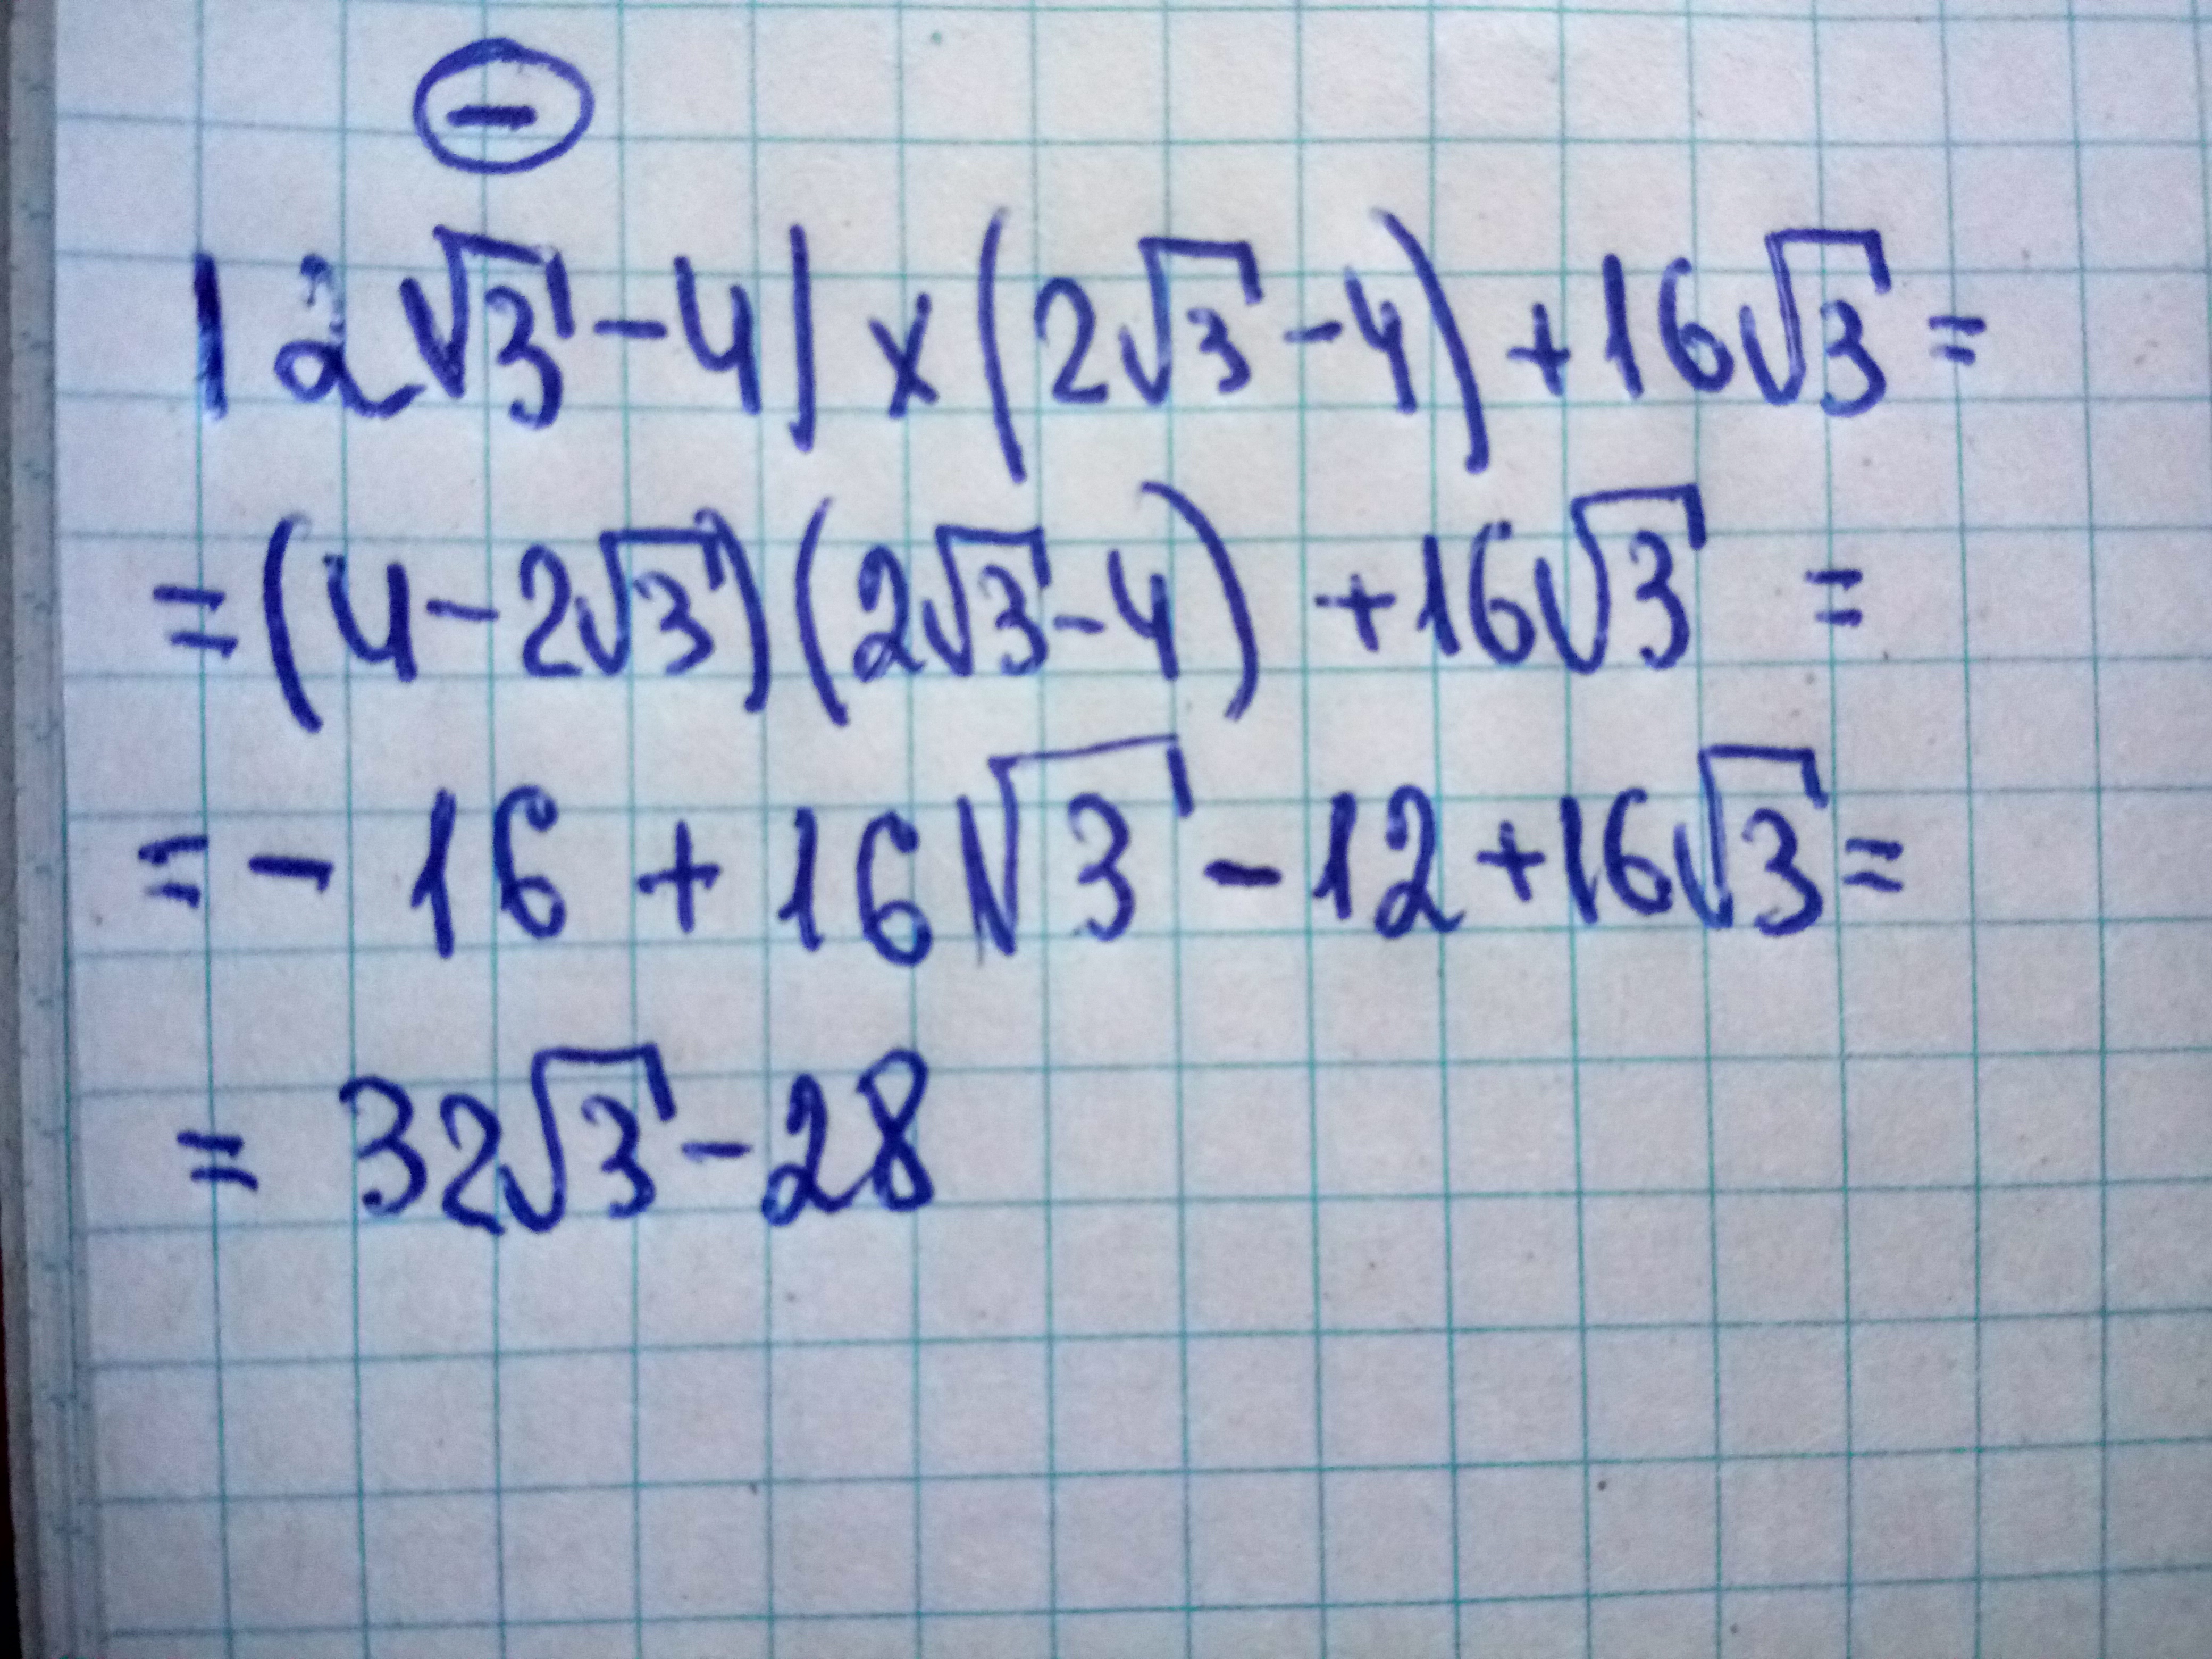 −
|2√3-4| x (2√3-4) +16√3 =
= (4-2√3)(2√3-4) +16√3 =
= - 16 + 16√3 - 12 +16√3 =
= 32√3 - 28